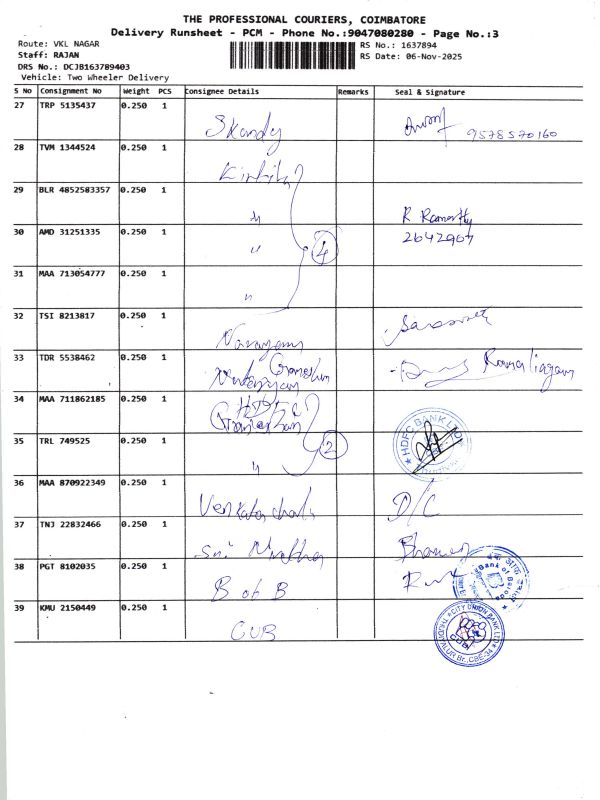 THE PROFESSIONAL COURIERS, COIMBATORE
Delivery Runsheet - PCM - Phone No.:9047080280 - Page No.:3
Route: VKL NAGAR
Staff: RAJAN
DRS No.: DCJB163789403
Vehicle: Two Wheeler Delivery
RS No.: 1637894
RS Date: 06-Nov-2025
S No Consignment No Weight PCS Consignee Details Remarks Seal & Signature
27 TRP 5135437 0.250 1 Skandy 9578570160
28 TVM 1344524 0.250 1
29 BLR 4852583357 0.250 1 " R Ramorthy
30 AMD 31251335 0.250 1 " 4 2642907
31 MAA 713054777 0.250 1 "
32 TSI 8213817 0.250 1 Narayani
33 TDR 5538462 0.250 1 Ganeshan
34 MAA 711862185 0.250 1 HDFC HDFC BANK LTD
35 TRL 749525 0.250 1 " 2
36 MAA 870922349 0.250 1 D/C
37 TNJ 22832466 0.250 1 Sri
38 PGT 8102035 0.250 1 B of B Bank of Baroda
39 KMU 2150449 0.250 1 CUB CITY UNION BANK LTD
CUB
Br., CBE-34